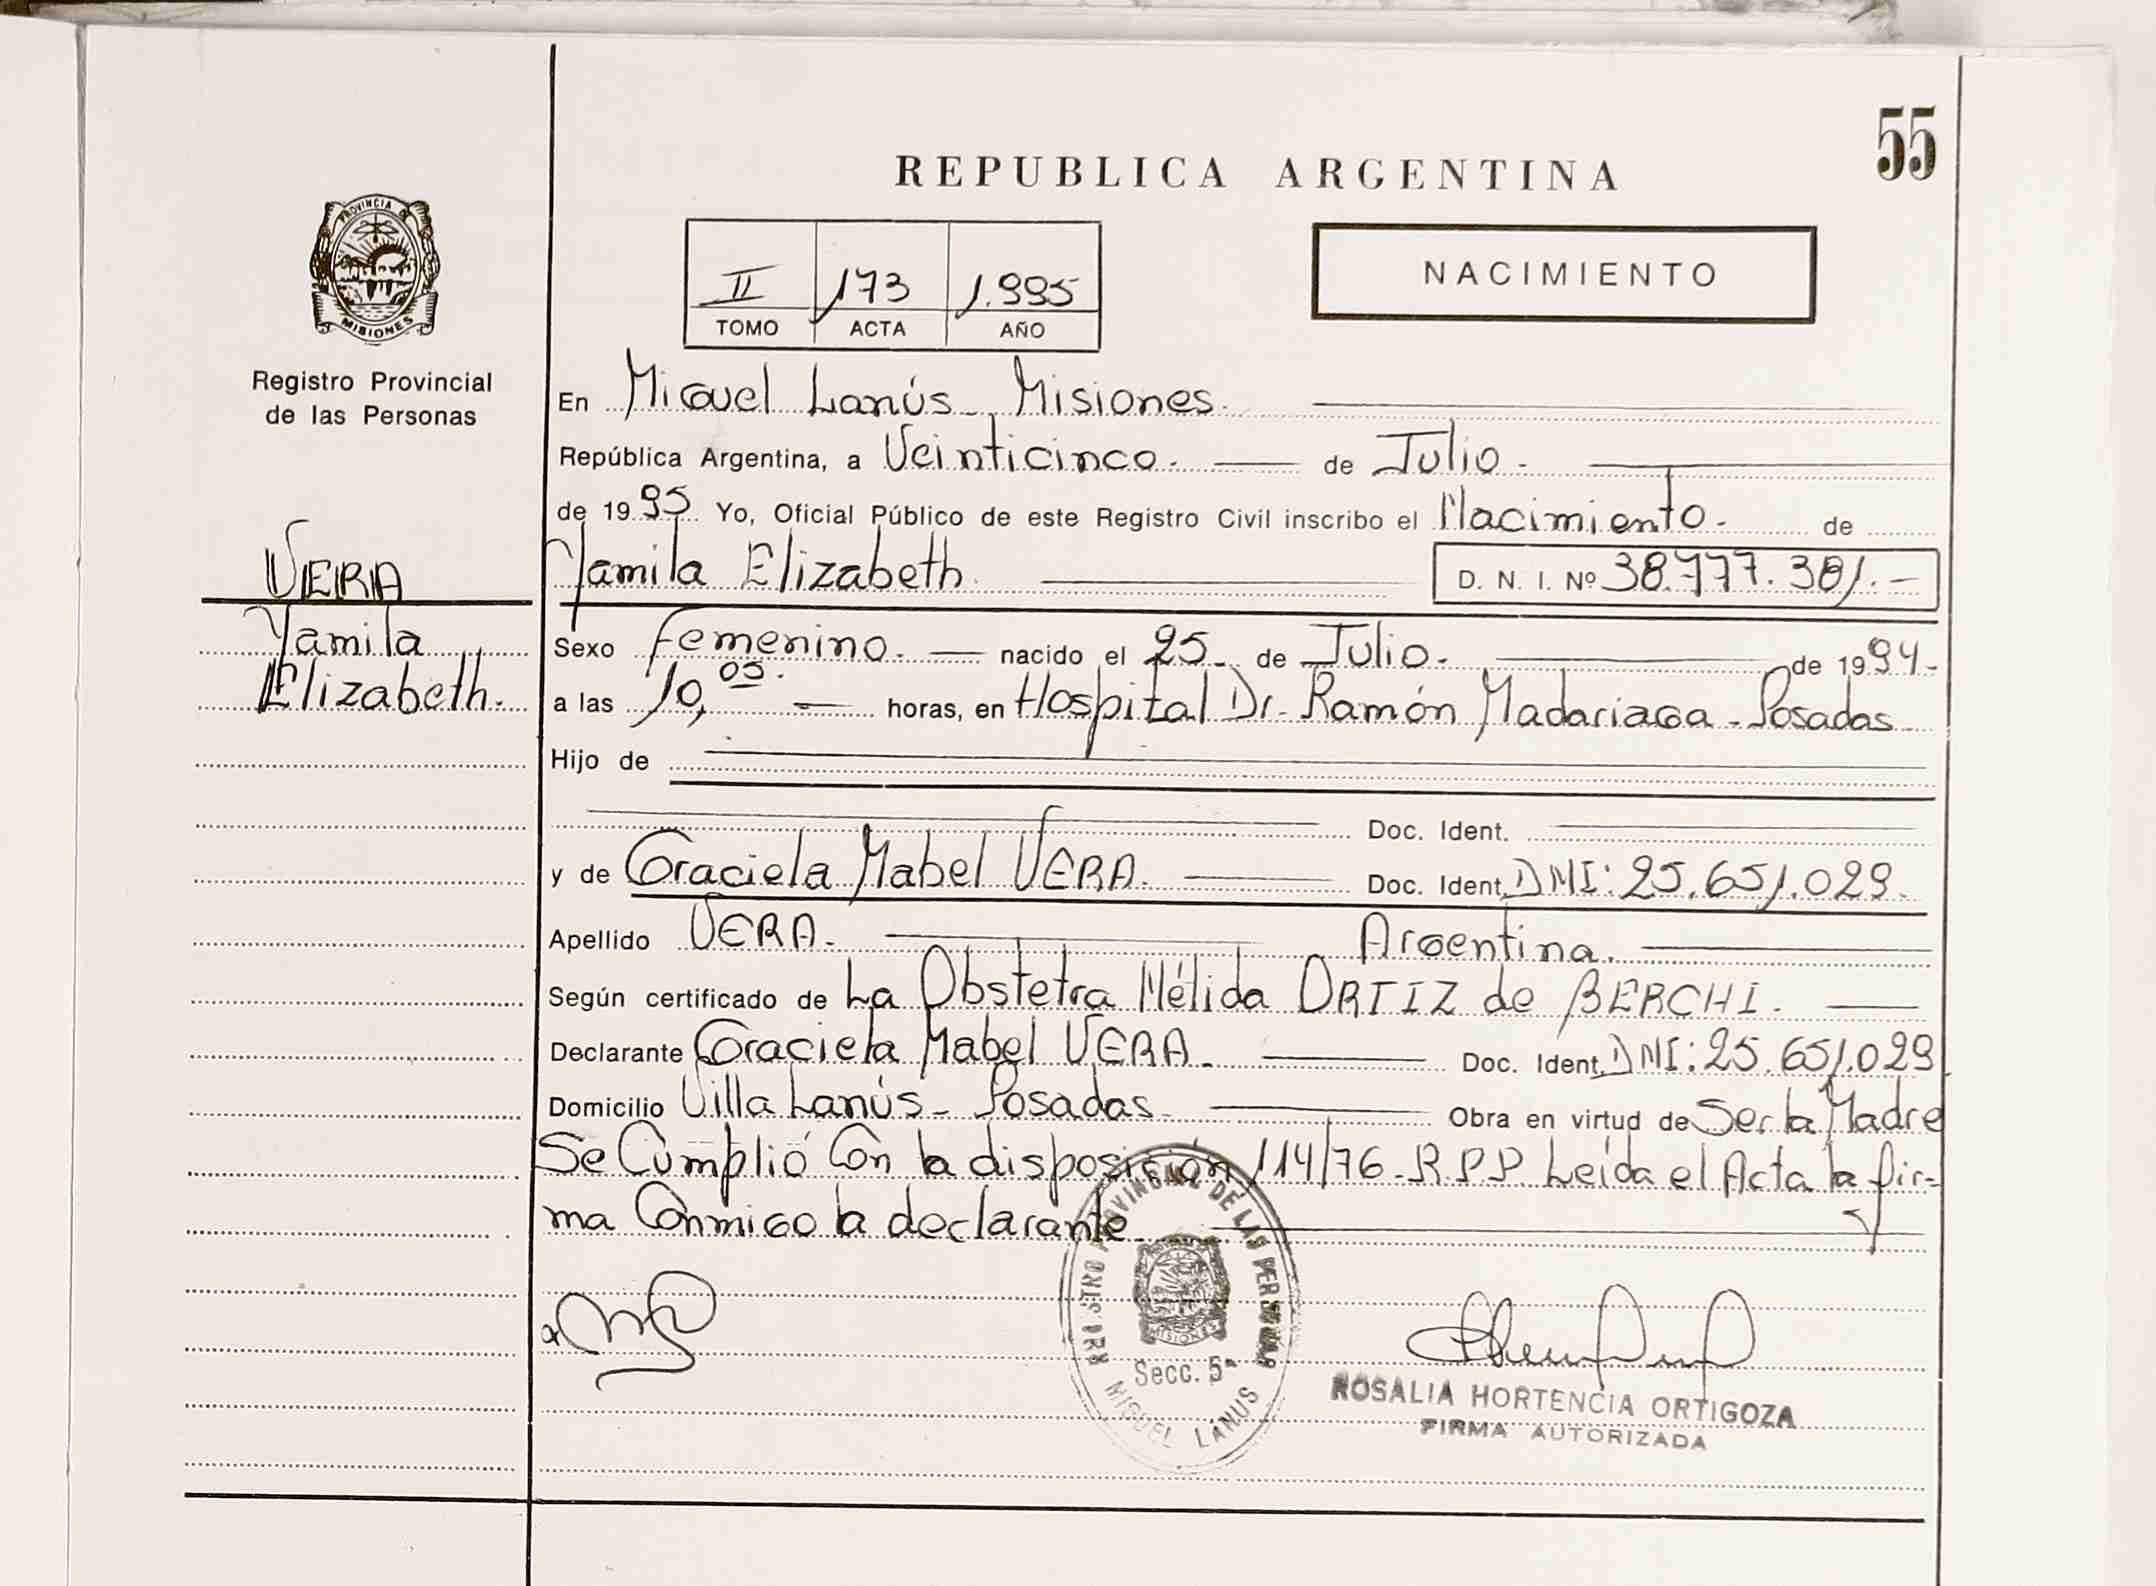 55
REPUBLICA ARGENTINA
PROVINCIA DE
MISIONES
Registro Provincial
de las Personas
II 173 1.995
TOMO ACTA AÑO
NACIMIENTO
En Miguel Lanús - Misiones.
República Argentina, a Veinticinco. de Julio.
de 1995 Yo, Oficial Público de este Registro Civil inscribo el Nacimiento. de
VERA
Yamila Elizabeth. D. N. I. Nº 38.777.381.-
Yamila
Sexo Femenino. nacido el 25 de Julio. de 1994.
Elizabeth.
a las 10,05. horas, en Hospital Dr. Ramón Madariaga - Posadas
Hijo de
Doc. Ident.
y de Graciela Mabel VERA. Doc. Ident. DNI: 25.651.029.
Apellido VERA. Argentina.
Según certificado de La Obstetra Nélida ORTIZ de BERCHI.
Declarante Graciela Mabel VERA. Doc. Ident. DNI: 25.651.029
Domicilio Villa Lanús - Posadas. Obra en virtud de Ser la Madre
Se Cumplió Con la disposición 114/76 - R.P.P. Leída el Acta la fir-
ma Conmigo la declarante
REGISTRO PROVINCIAL DE LAS PERSONAS
MISIONES
Secc. 5ª
MIGUEL LANUS
ROSALIA HORTENCIA ORTIGOZA
FIRMA AUTORIZADA